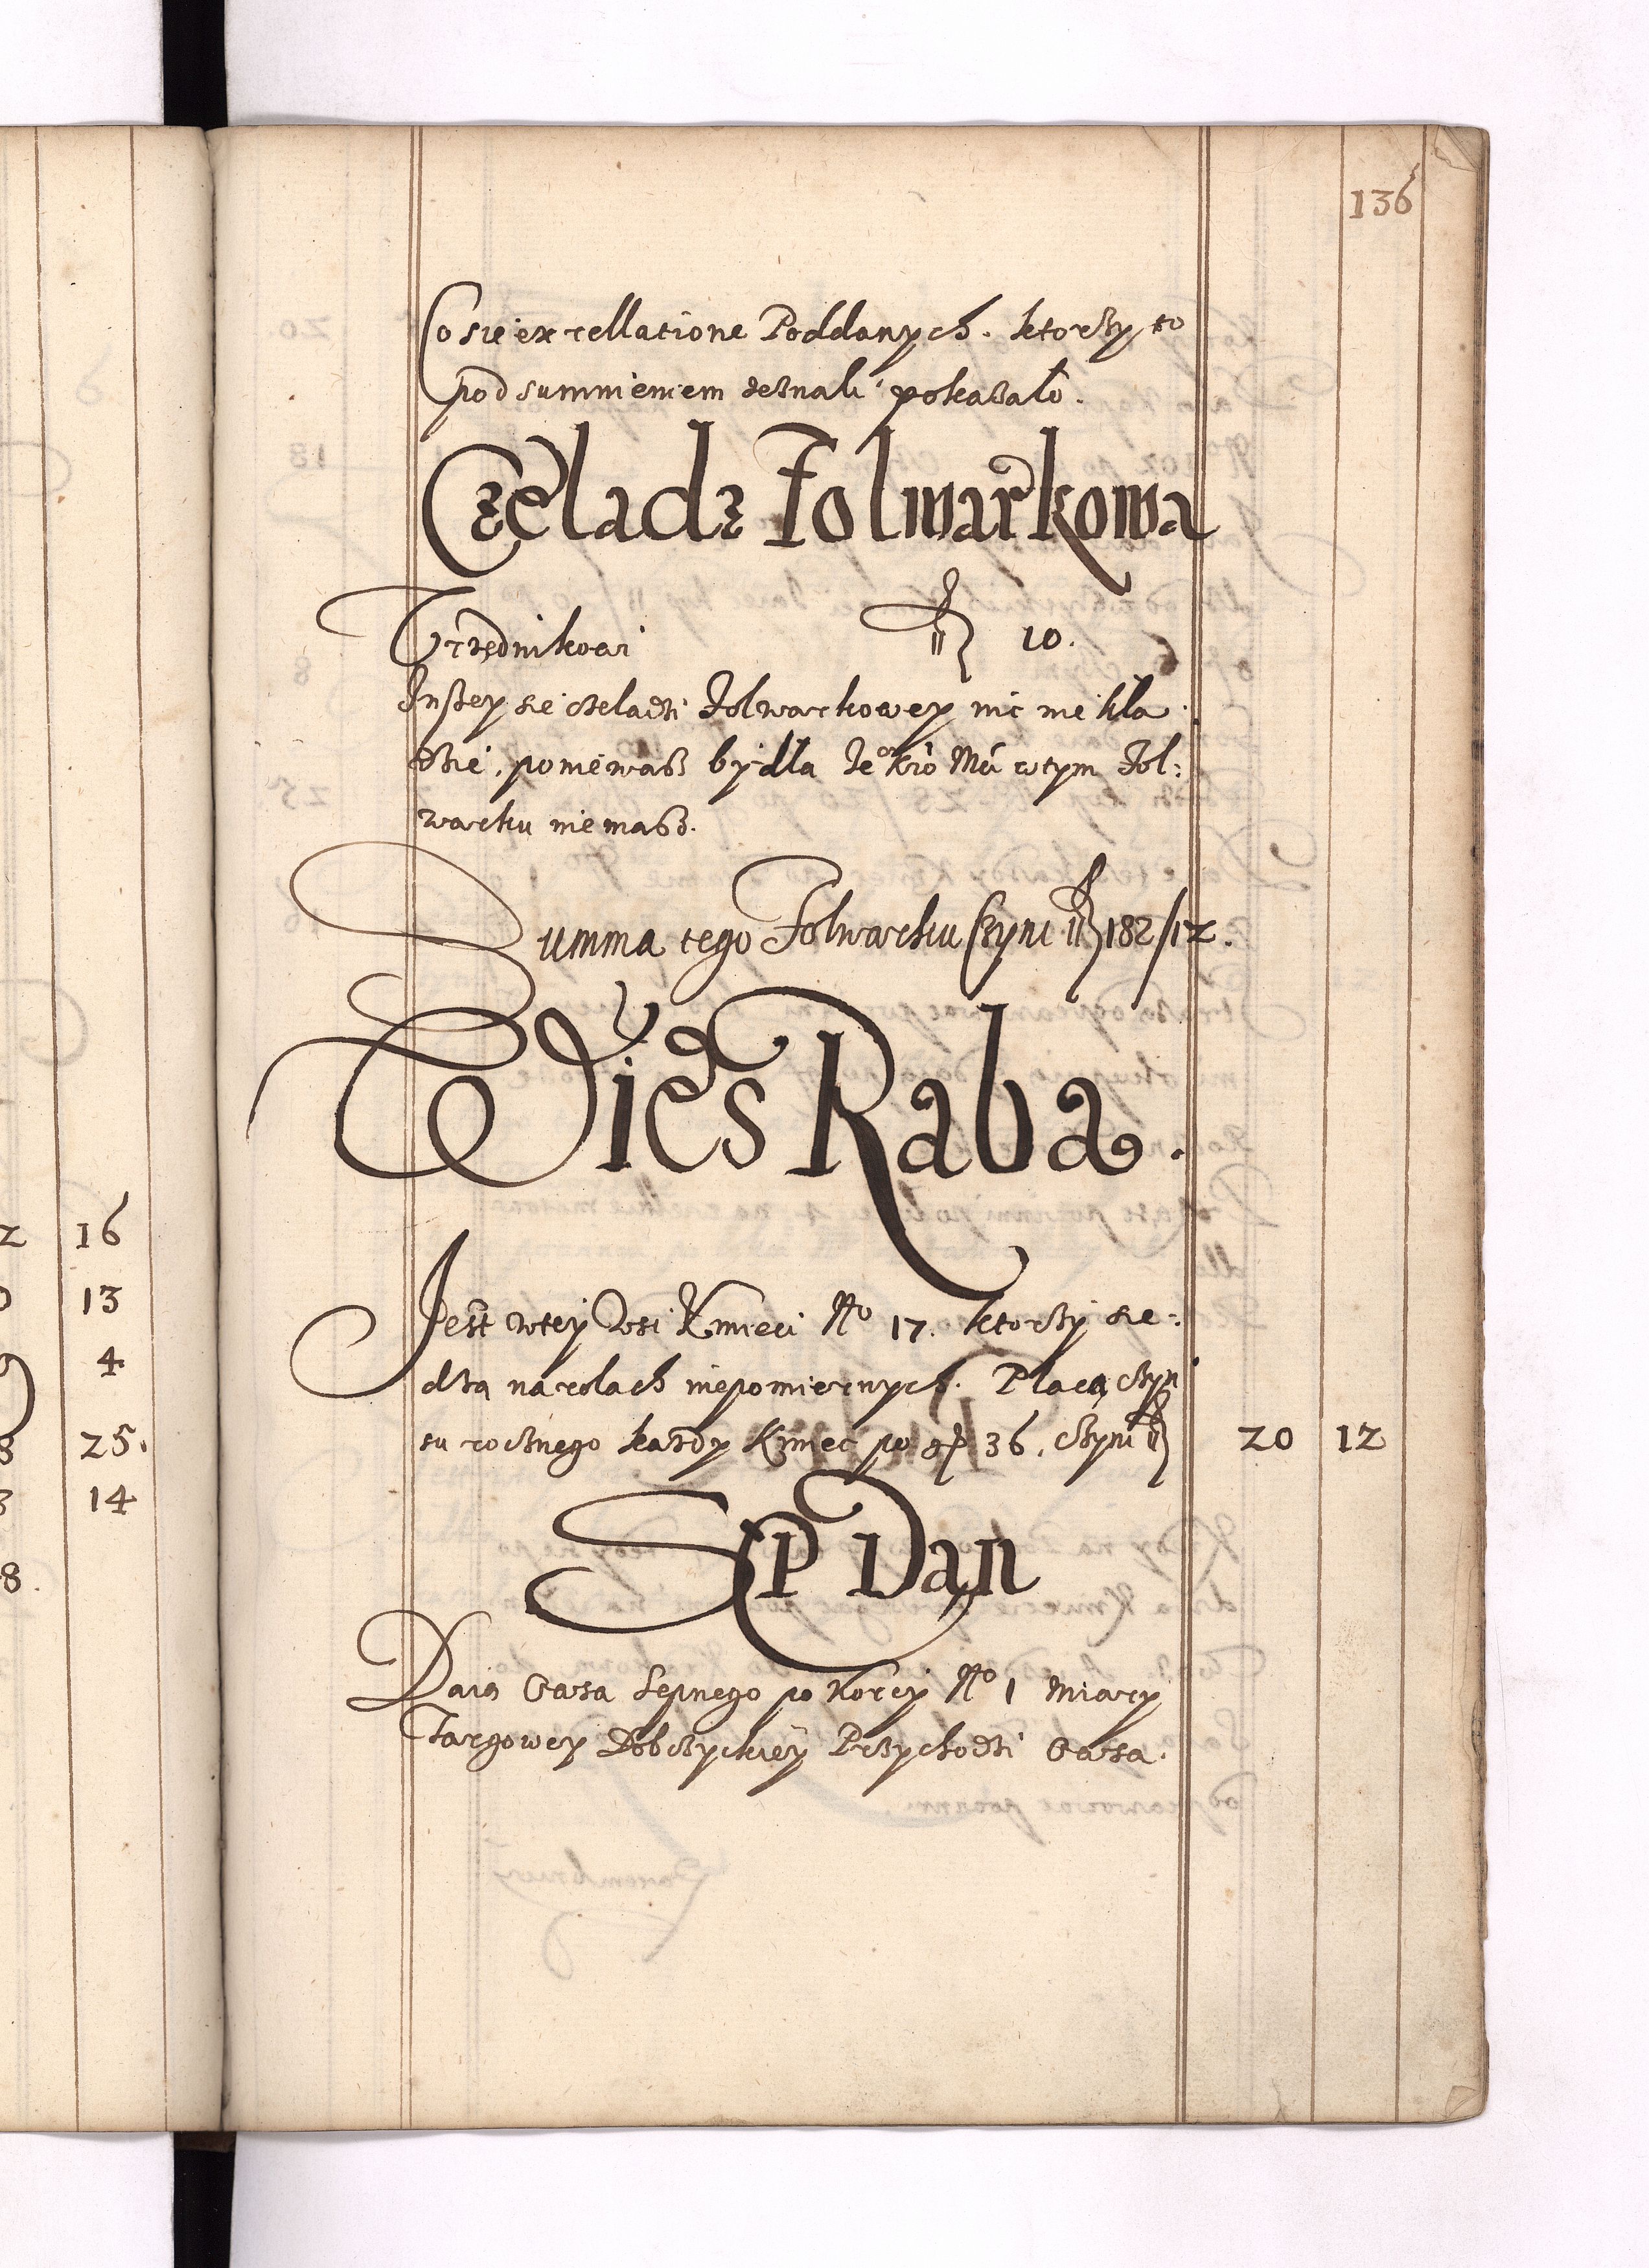 136
Co sie ex rellatione Poddanych. ktorzy to
pod sumnieniem zeznali pokazało.
Czeladz Folwarkowa
Vrzędnikowi fl 10.
Inszey sie czeladzi Folwarkowey nic nie kła
dzie, poniewasz bydła Je° Kro Mci w tym Fol:
warku niemasz.
Summa tego Folwarku Czyni fl 182/12.
Wies Raba.
Jest w tey Wsi Kmieci No 17. ktorzy sie:
dzą na rolach niepomiernych. Płacą czyn
su rocznego kazdy Kmiec po gr 36. czyni fl 20 12
SEP Dan
Daią Owsa Sepnego po Korcy No 1 Miary
Targowey Dobczyckiey Przychodzi Owsa.
16
13
4
25.
14
8.